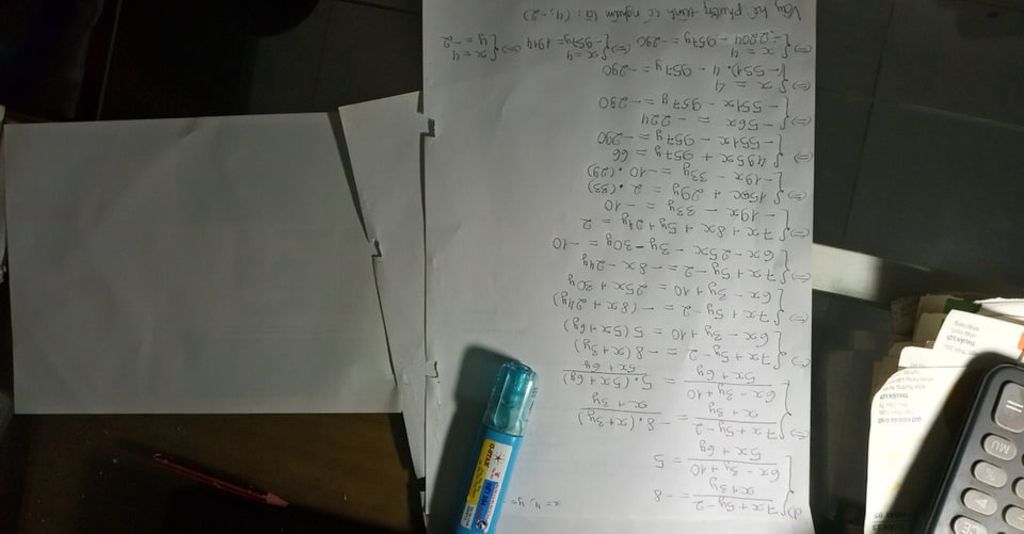 d) { (7x + 5y - 2)/(x + 3y) = -8
(6x - 3y + 10)/(5x + 6y) = 5
x = 4, y =
⇔ { (7x + 5y - 2)/(x + 3y) = (-8.(x + 3y))/(x + 3y)
(6x - 3y + 10)/(5x + 6y) = (5.(5x + 6y))/(5x + 6y)
⇔ { 7x + 5y - 2 = -8(x + 3y)
6x - 3y + 10 = 5(5x + 6y)
⇔ { 7x + 5y - 2 = -(8x + 24y)
6x - 3y + 10 = 25x + 30y
⇔ { 7x + 5y - 2 = -8x - 24y
6x - 25x - 3y - 30y = -10
⇔ { 7x + 8x + 5y + 24y = 2
-19x - 33y = -10
⇔ { 15x + 29y = 2 .(33)
-19x - 33y = -10 .(29)
⇔ { 495x + 957y = 66
-551x - 957y = -290
⇔ { -56x = -224
-551x - 957y = -290
⇔ { x = 4
(-551).4 - 957y = -290
⇔ { x = 4
-2204 - 957y = -290
⇔ { x = 4
-957y = 1914
⇔ { x = 4
y = -2
Vậy hệ phương trình có nghiệm là: (4; -2)
THUẬN LỢI
MU